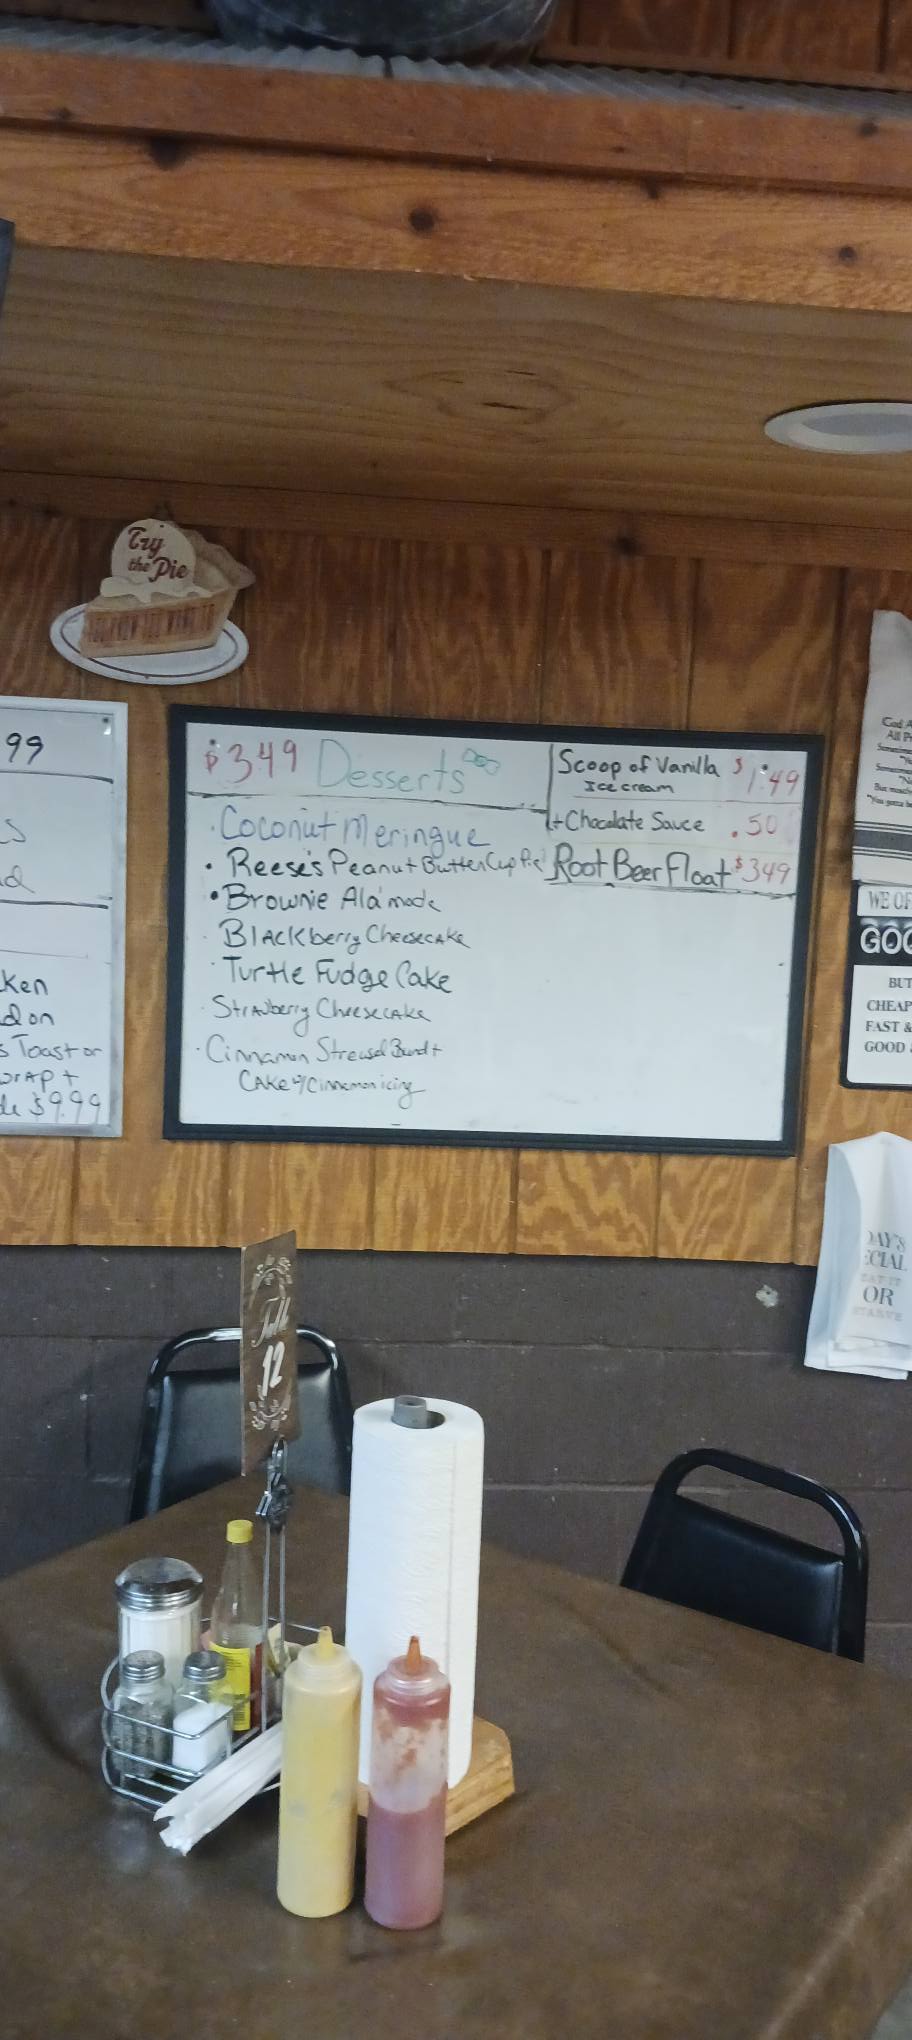 Try
the Pie
YOU KNOW YOU WANT TO
99
$3.49 Desserts
Coconut Meringue
• Reese's Peanut Butter Cup Pie
• Brownie Ala'mode
· Blackberry Cheesecake
· Turtle Fudge Cake
· Strawberry Cheesecake
· Cinnamon Streusel Bundt
Cake w/Cinnamon icing
Scoop of Vanilla $1.49
Ice cream
+Chocolate Sauce .50
Root Beer Float $3.49
ken
d on
s Toast or
wrap +
de $9.99
God A
All P
WE OF
GOO
BUT
CHEAP
FAST &
GOOD
DAY'S
ECIAL
EAT IT
OR
STARVE
Table
12